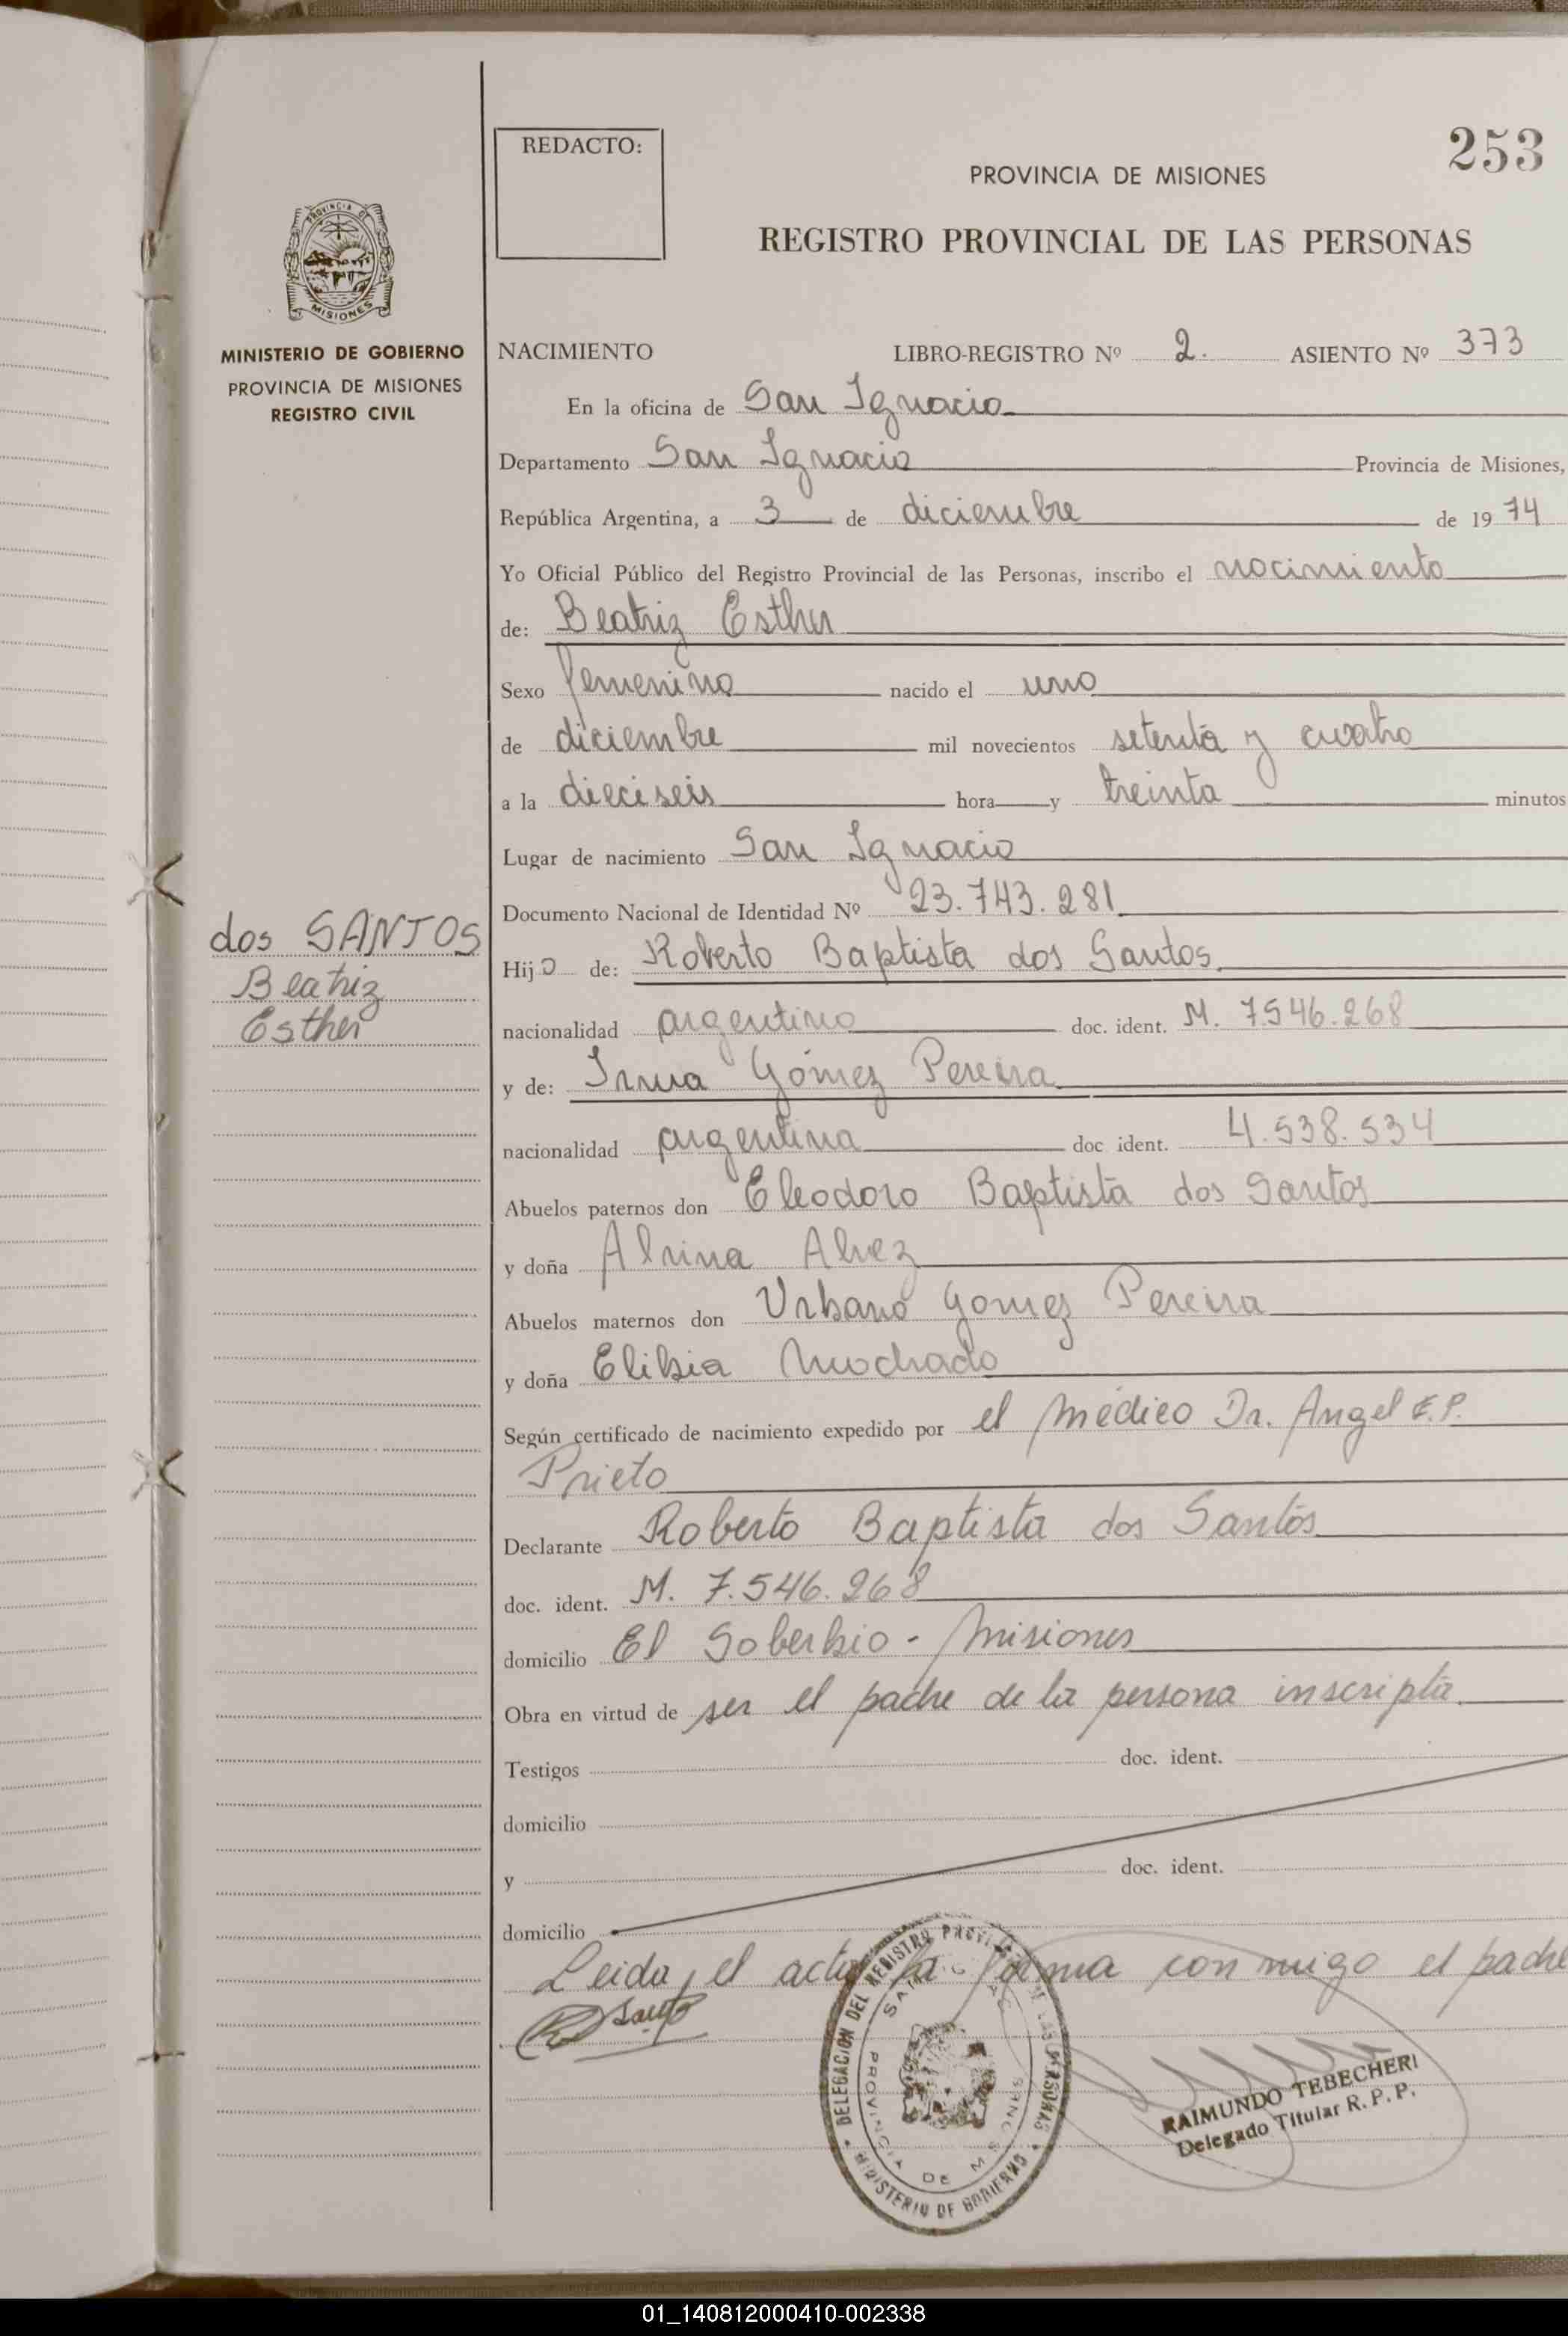 253
REDACTO:
PROVINCIA DE MISIONES
REGISTRO PROVINCIAL DE LAS PERSONAS
PROVINCIA DE
MISIONES
MINISTERIO DE GOBIERNO
PROVINCIA DE MISIONES
REGISTRO CIVIL
NACIMIENTO LIBRO-REGISTRO Nº 2. ASIENTO Nº 373
En la oficina de San Ignacio
Departamento San Ignacio Provincia de Misiones,
República Argentina, a 3 de diciembre de 1974
Yo Oficial Público del Registro Provincial de las Personas, inscribo el nacimiento
de: Beatriz Esther
Sexo femenino nacido el uno
de diciembre mil novecientos setenta y cuatro
a la dieciseis hora y treinta minutos
Lugar de nacimiento San Ignacio
Documento Nacional de Identidad Nº 23.743.281
dos SANTOS
Beatriz
Esther
Hijo de: Roberto Baptista dos Santos
nacionalidad argentino doc. ident. M. 7.546.268
y de: Irma Gómez Pereira
nacionalidad argentina doc ident. 4.538.534
Abuelos paternos don Eleodoro Baptista dos Santos
y doña Alvina Alvez
Abuelos maternos don Urbano Gomez Pereira
y doña Elibia Machado
Según certificado de nacimiento expedido por el médico Dr. Angel E.P.
Prieto
Declarante Roberto Baptista dos Santos
doc. ident. M. 7.546.268
domicilio El Soberbio - Misiones
Obra en virtud de ser el padre de la persona inscripta
Testigos doc. ident.
domicilio
y doc. ident.
domicilio
Leida, el acta la forma conmigo el padre
DELEGACION DEL REGISTRO DE LAS PERSONAS
MINISTERIO DE GOBIERNO
PROVINCIA DE
RAIMUNDO TEBECHERI
Delegado Titular R. P. P.
01_140812000410-002338